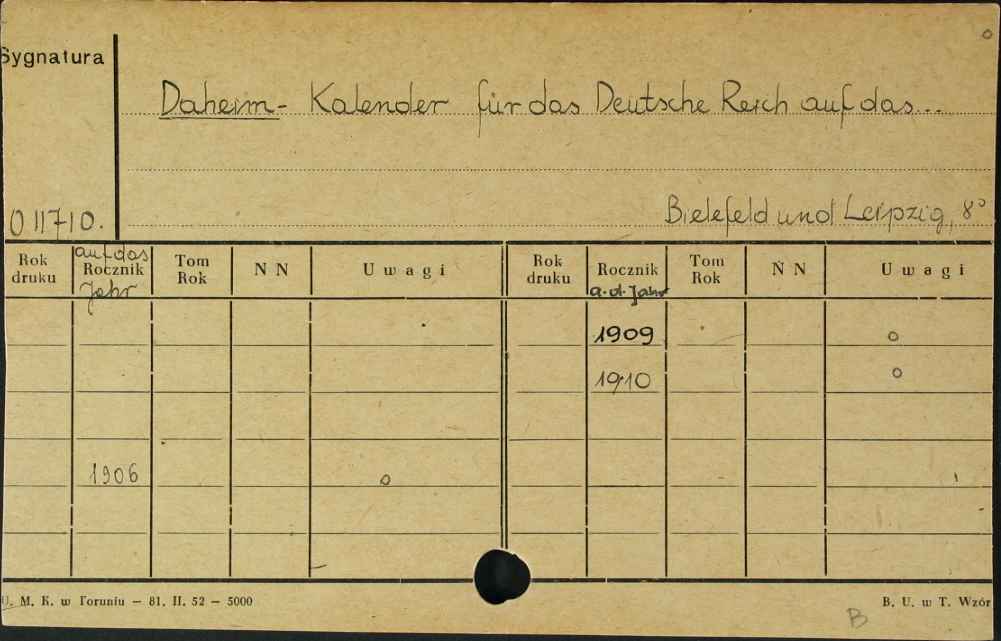 Sygnatura
Daheim- Kalender für das Deutsche Reich auf das...
011710.
Bielefeld und Leipzig, 8°
Rok druku auf das Rocznik Jahr Tom Rok N N Uwagi Rok druku Rocznik a.d. Jahr Tom Rok N N Uwagi
1909 o
1910 o
1906 o
U. M. K. w Toruniu – 81. II. 52 – 5000
B. U. w T. Wzór
B